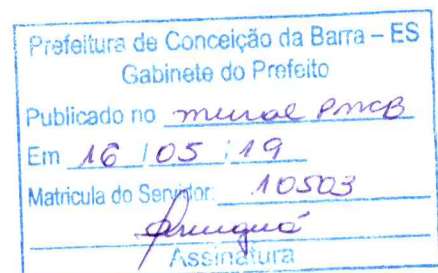 Prefeitura de Conceição da Barra – ES
Gabinete do Prefeito
Publicado no mural PMCB
Em 16 / 05 / 19
Matricula do Servidor: 10503
Assinatura